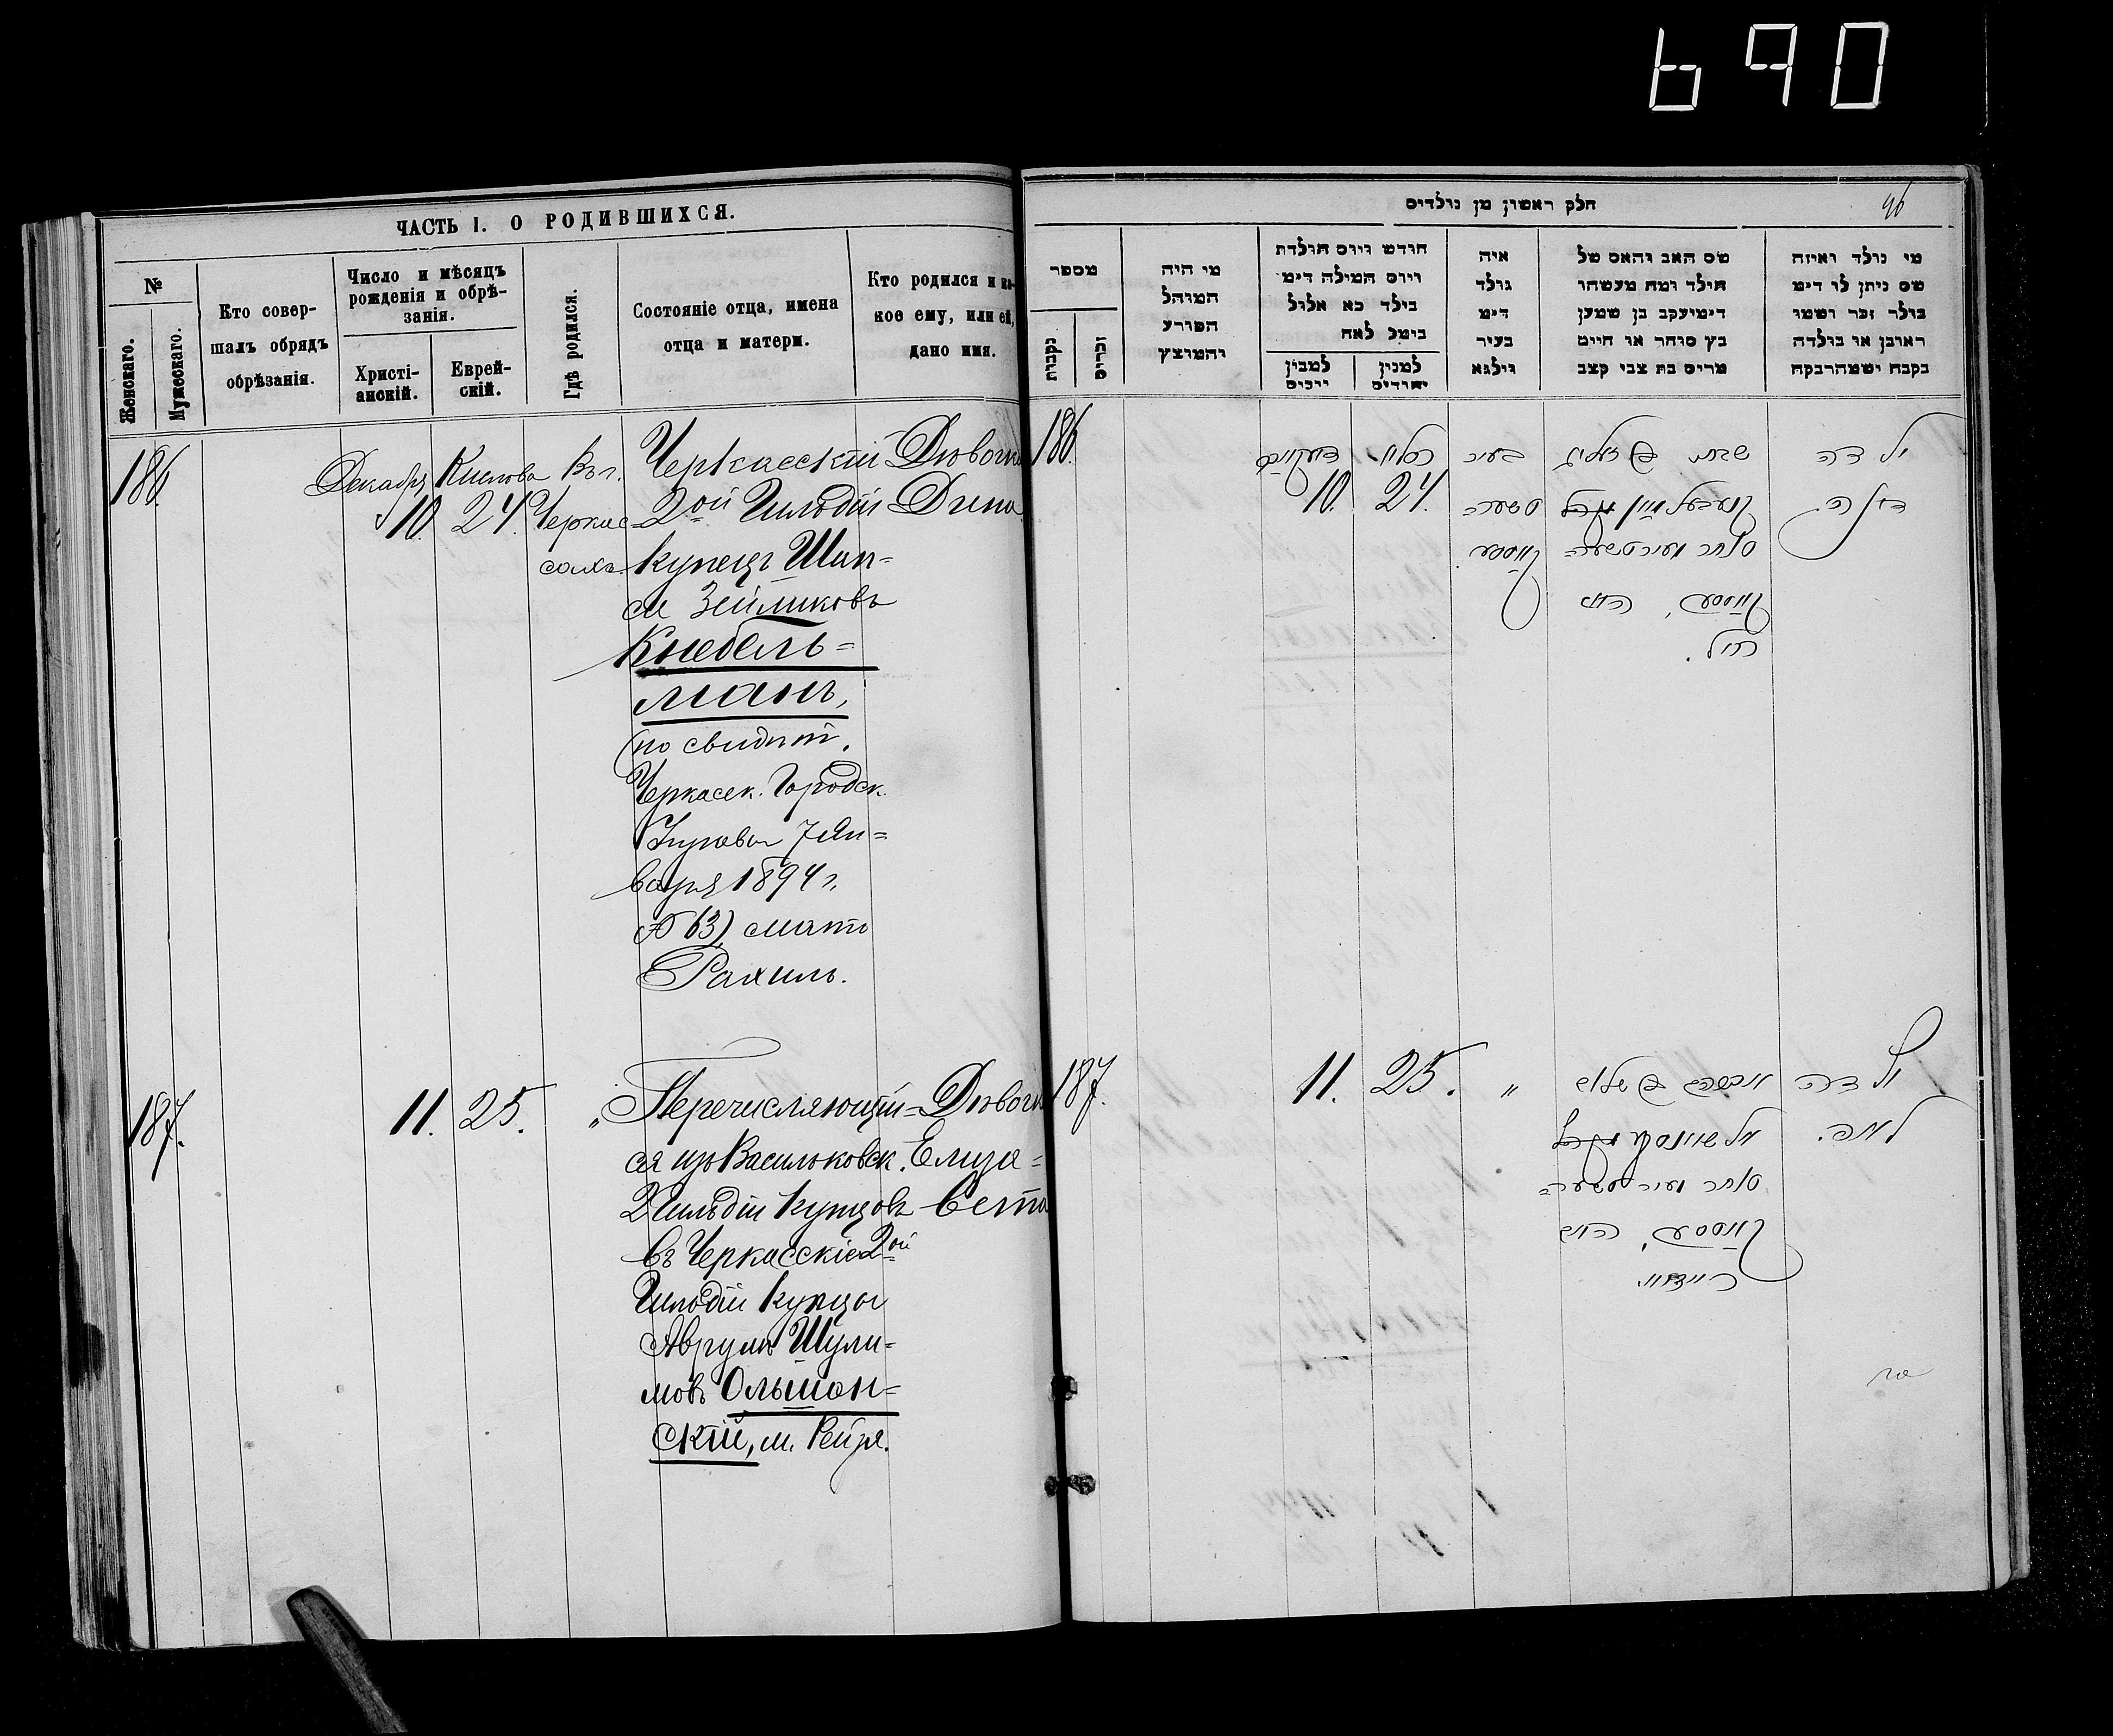 690
ЧАСТЬ I. О РОДИВШИХСЯ.
№
Женскаго.
Мужескаго.
Кто совер-
шалъ обрядъ
обрѣзанія.
Число и мѣсяцъ
рожденія и обрѣ-
занія.
Христі-
анскій.
Еврей-
скій.
Гдѣ родился.
Состояніе отца, имена
отца и матери.
Кто родился и ка-
кое ему, или ей,
дано имя.
186.
Декабря
10.
Кислова
24.
Въ г.
Черкас-
сахъ
Черкасскій
2ой Гильдіи
купецъ Шап-
си Зейликовъ
Кнебель=
манъ,
(по свидѣт.
Черкасск. Городск.
Управы 7 Ян=
варя 1894 г.
№ 63) мать
Рахиль.
Дѣвочка
Дина
187.
11.
25.
"
Перечисляющій=
ся изъ Васильковск.
2 Гильдіи купцовъ
въ Черкасскіе 2ой
Гильдіи купцы
Аврумъ Шули-
мовъ Ольшан=
скій, м. Рейзя.
Дѣвочка
Елиза=
вета
חלק ראשון מן נולדים
96
מספר
נקבות
זכרים
מי היה
המוהל
הפורע
והמוצץ
חודש ויום תולדת
ויום המילה דימ
בילד כא אלול
בימל לאח
למנין
ייכים
למנין
יהודים
איה
נולד
דימ
בעיר
ווילנא
שם האב והאם של
הילד ומה מעשהו
דימיעקב בן שמען
בץ סוחר או חייט
מרים בת צבי קצב
מי נולד ואיזה
שם ניתן לו דימ
בילד זכר ושמו
ראובן או בילדה
נקבה ושמה רבקה
186.
10.
24.
בעיר
ילדה
דינה
סוחר
רחל.
187.
11.
25.
"
ילדה
סוחר